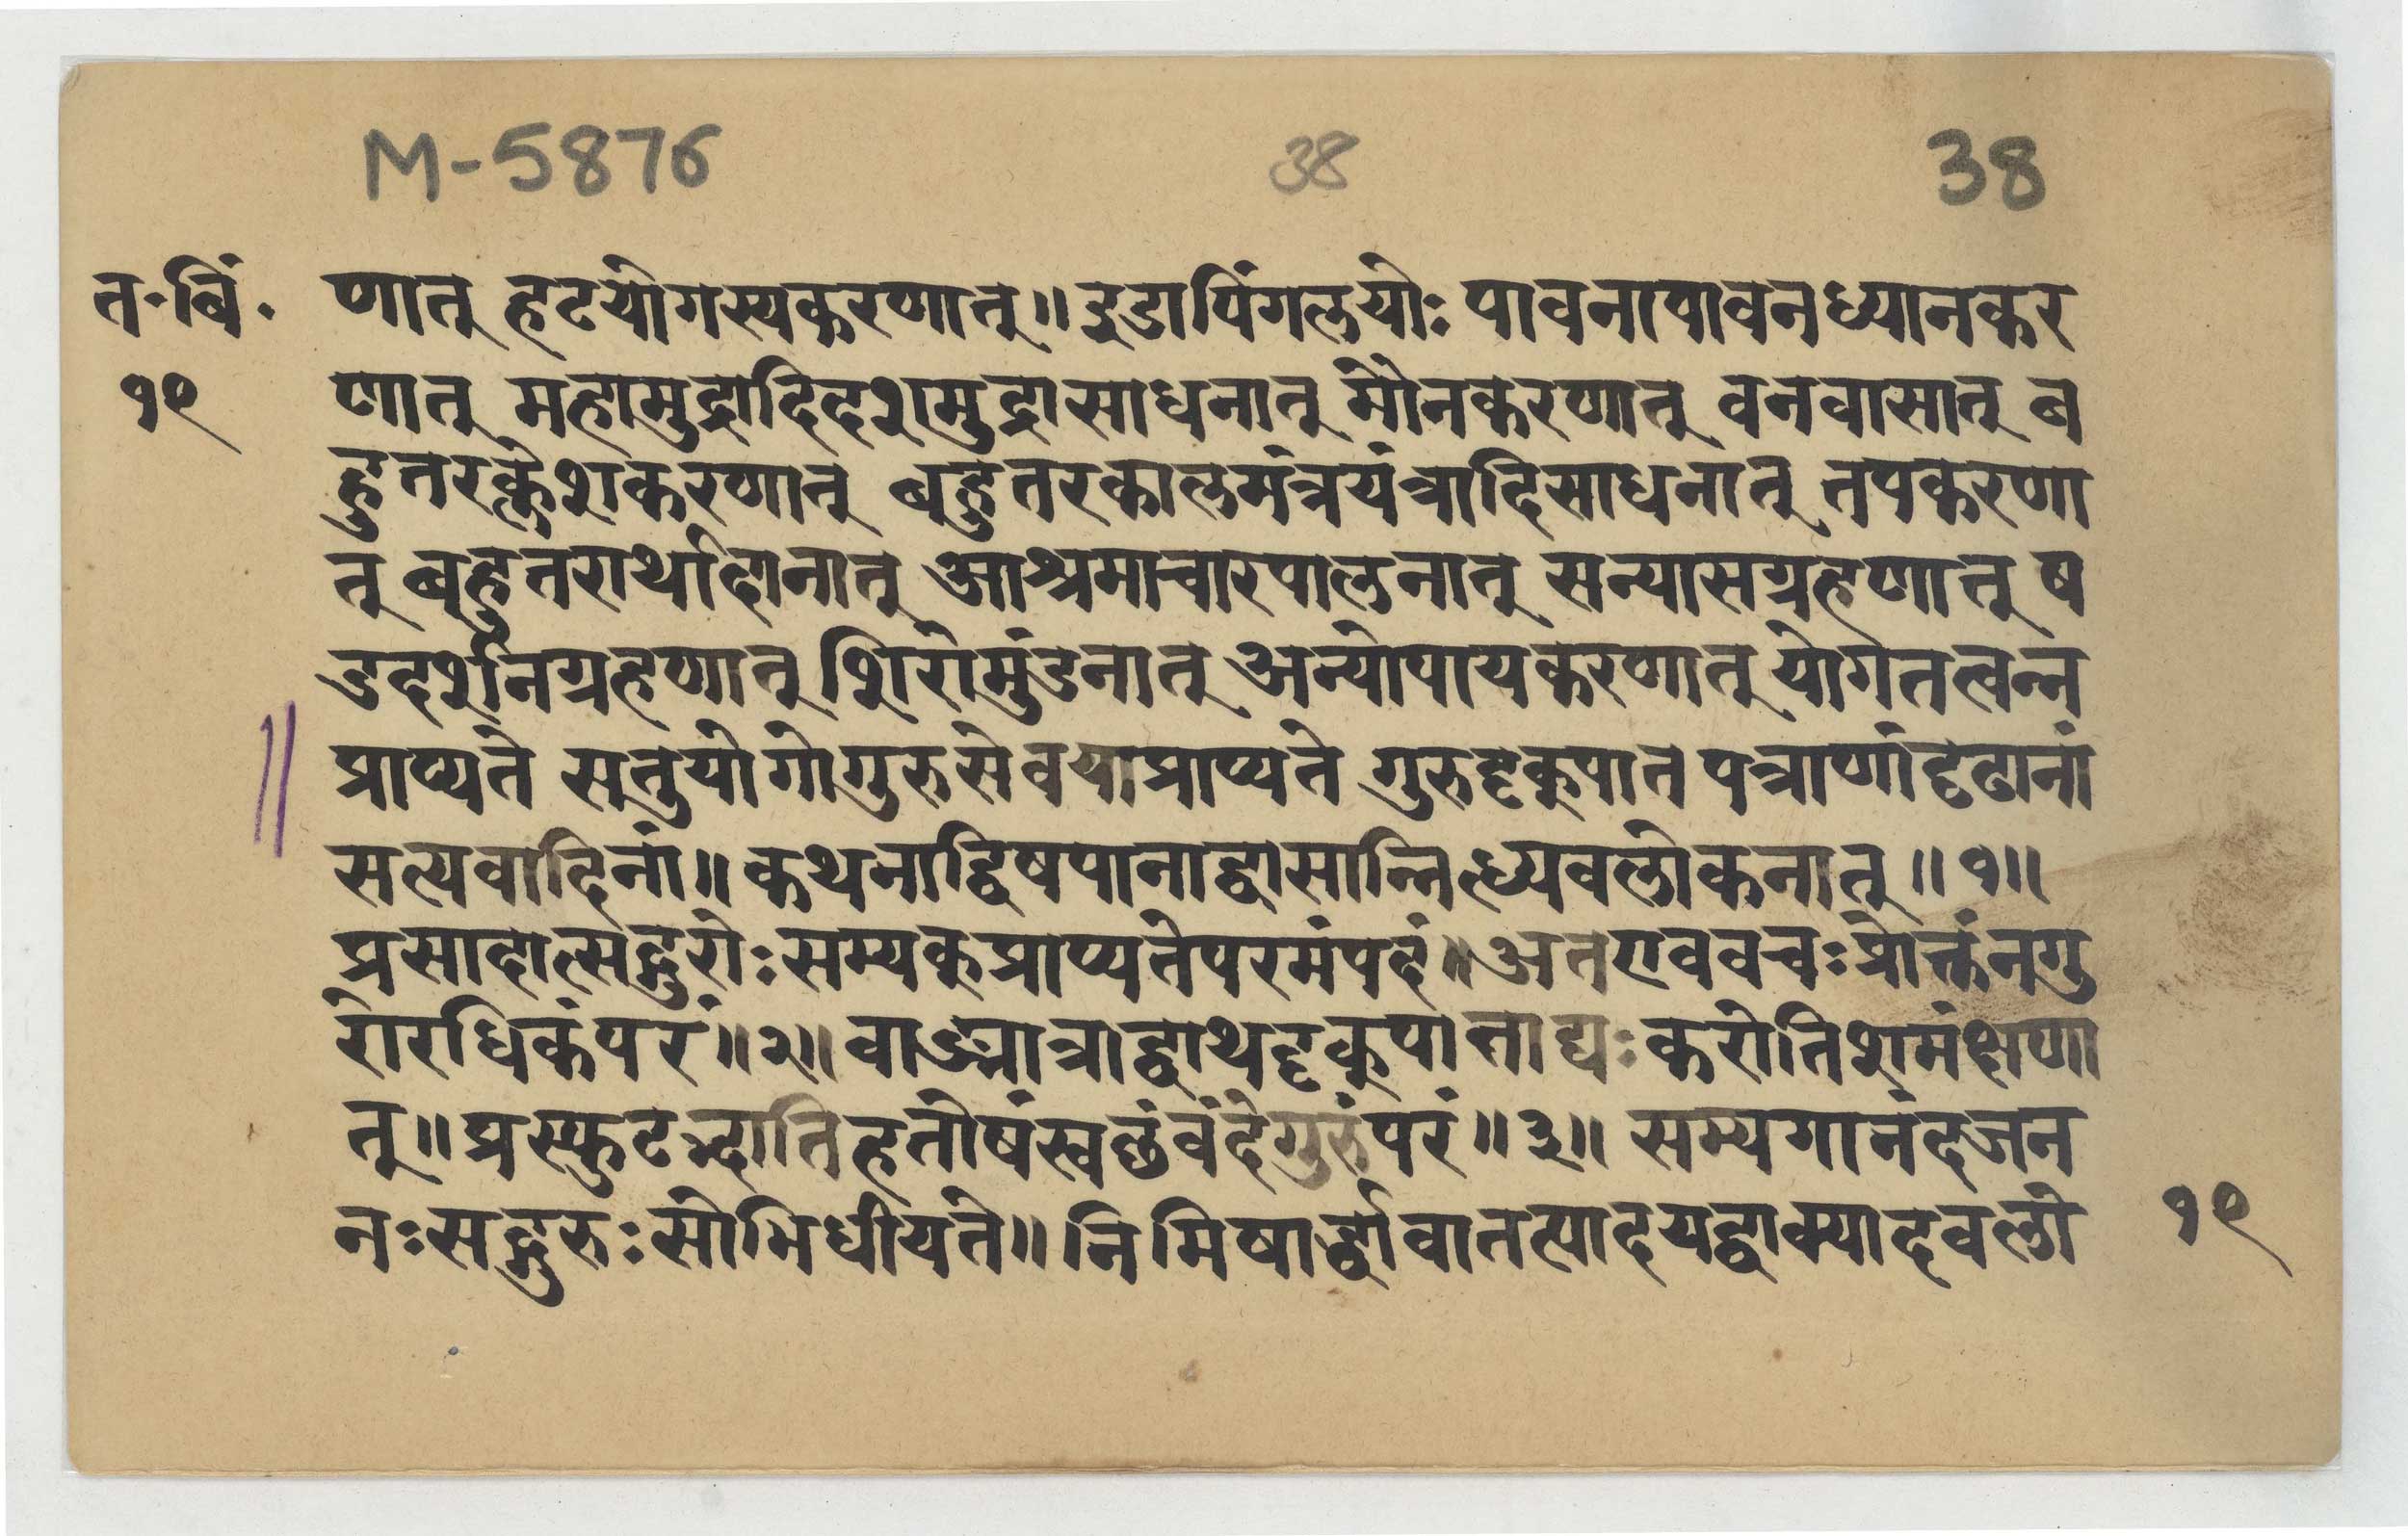 M-5876 38 38
त॰बिं॰ णात् हटयोगस्यकरणात्॥इडापिंगलयोः पावनापावनध्यानकर
१९ णात् महामुद्रादिदशमुद्रासाधनात् मौनकरणात् वनवासात् ब
हुतरक्लेशकरणात् बहुतरकालमंत्रयंत्रादिसाधनात् तपकरणा
त् बहुतरार्थादानात् आश्रमाचारपालनात् सन्यासग्रहणात् ष
डदर्शनग्रहणात् शिरोमुंडनात् अन्योपायकरणात् योगतत्वन्न
प्राप्यते सतुयोगोगुरुसेवयाप्राप्यते गुरुदृक्पातपत्राणांदृढानां
सत्यवादिनां॥ कथनाद्विषपानाद्वासान्निध्यवलोकनात्॥१॥
प्रसादात्सद्गुरोःसम्यक्प्राप्यतेपरमंपदं॥अतएववचःप्रोक्तंनगु
रोरधिकंपरं॥२॥ वाङ्मात्राद्वाथदृक्पाताद्यःकरोतिशमंक्षणा
त्॥प्रस्फुटद्भातिहतोषंस्वछंवंदेगुरुंपरं॥३॥ सम्यगानंदजन
नःसद्गुरुःसोभिधीयते॥ निमिषार्द्धावातत्पादयद्वाक्यादवलो १९